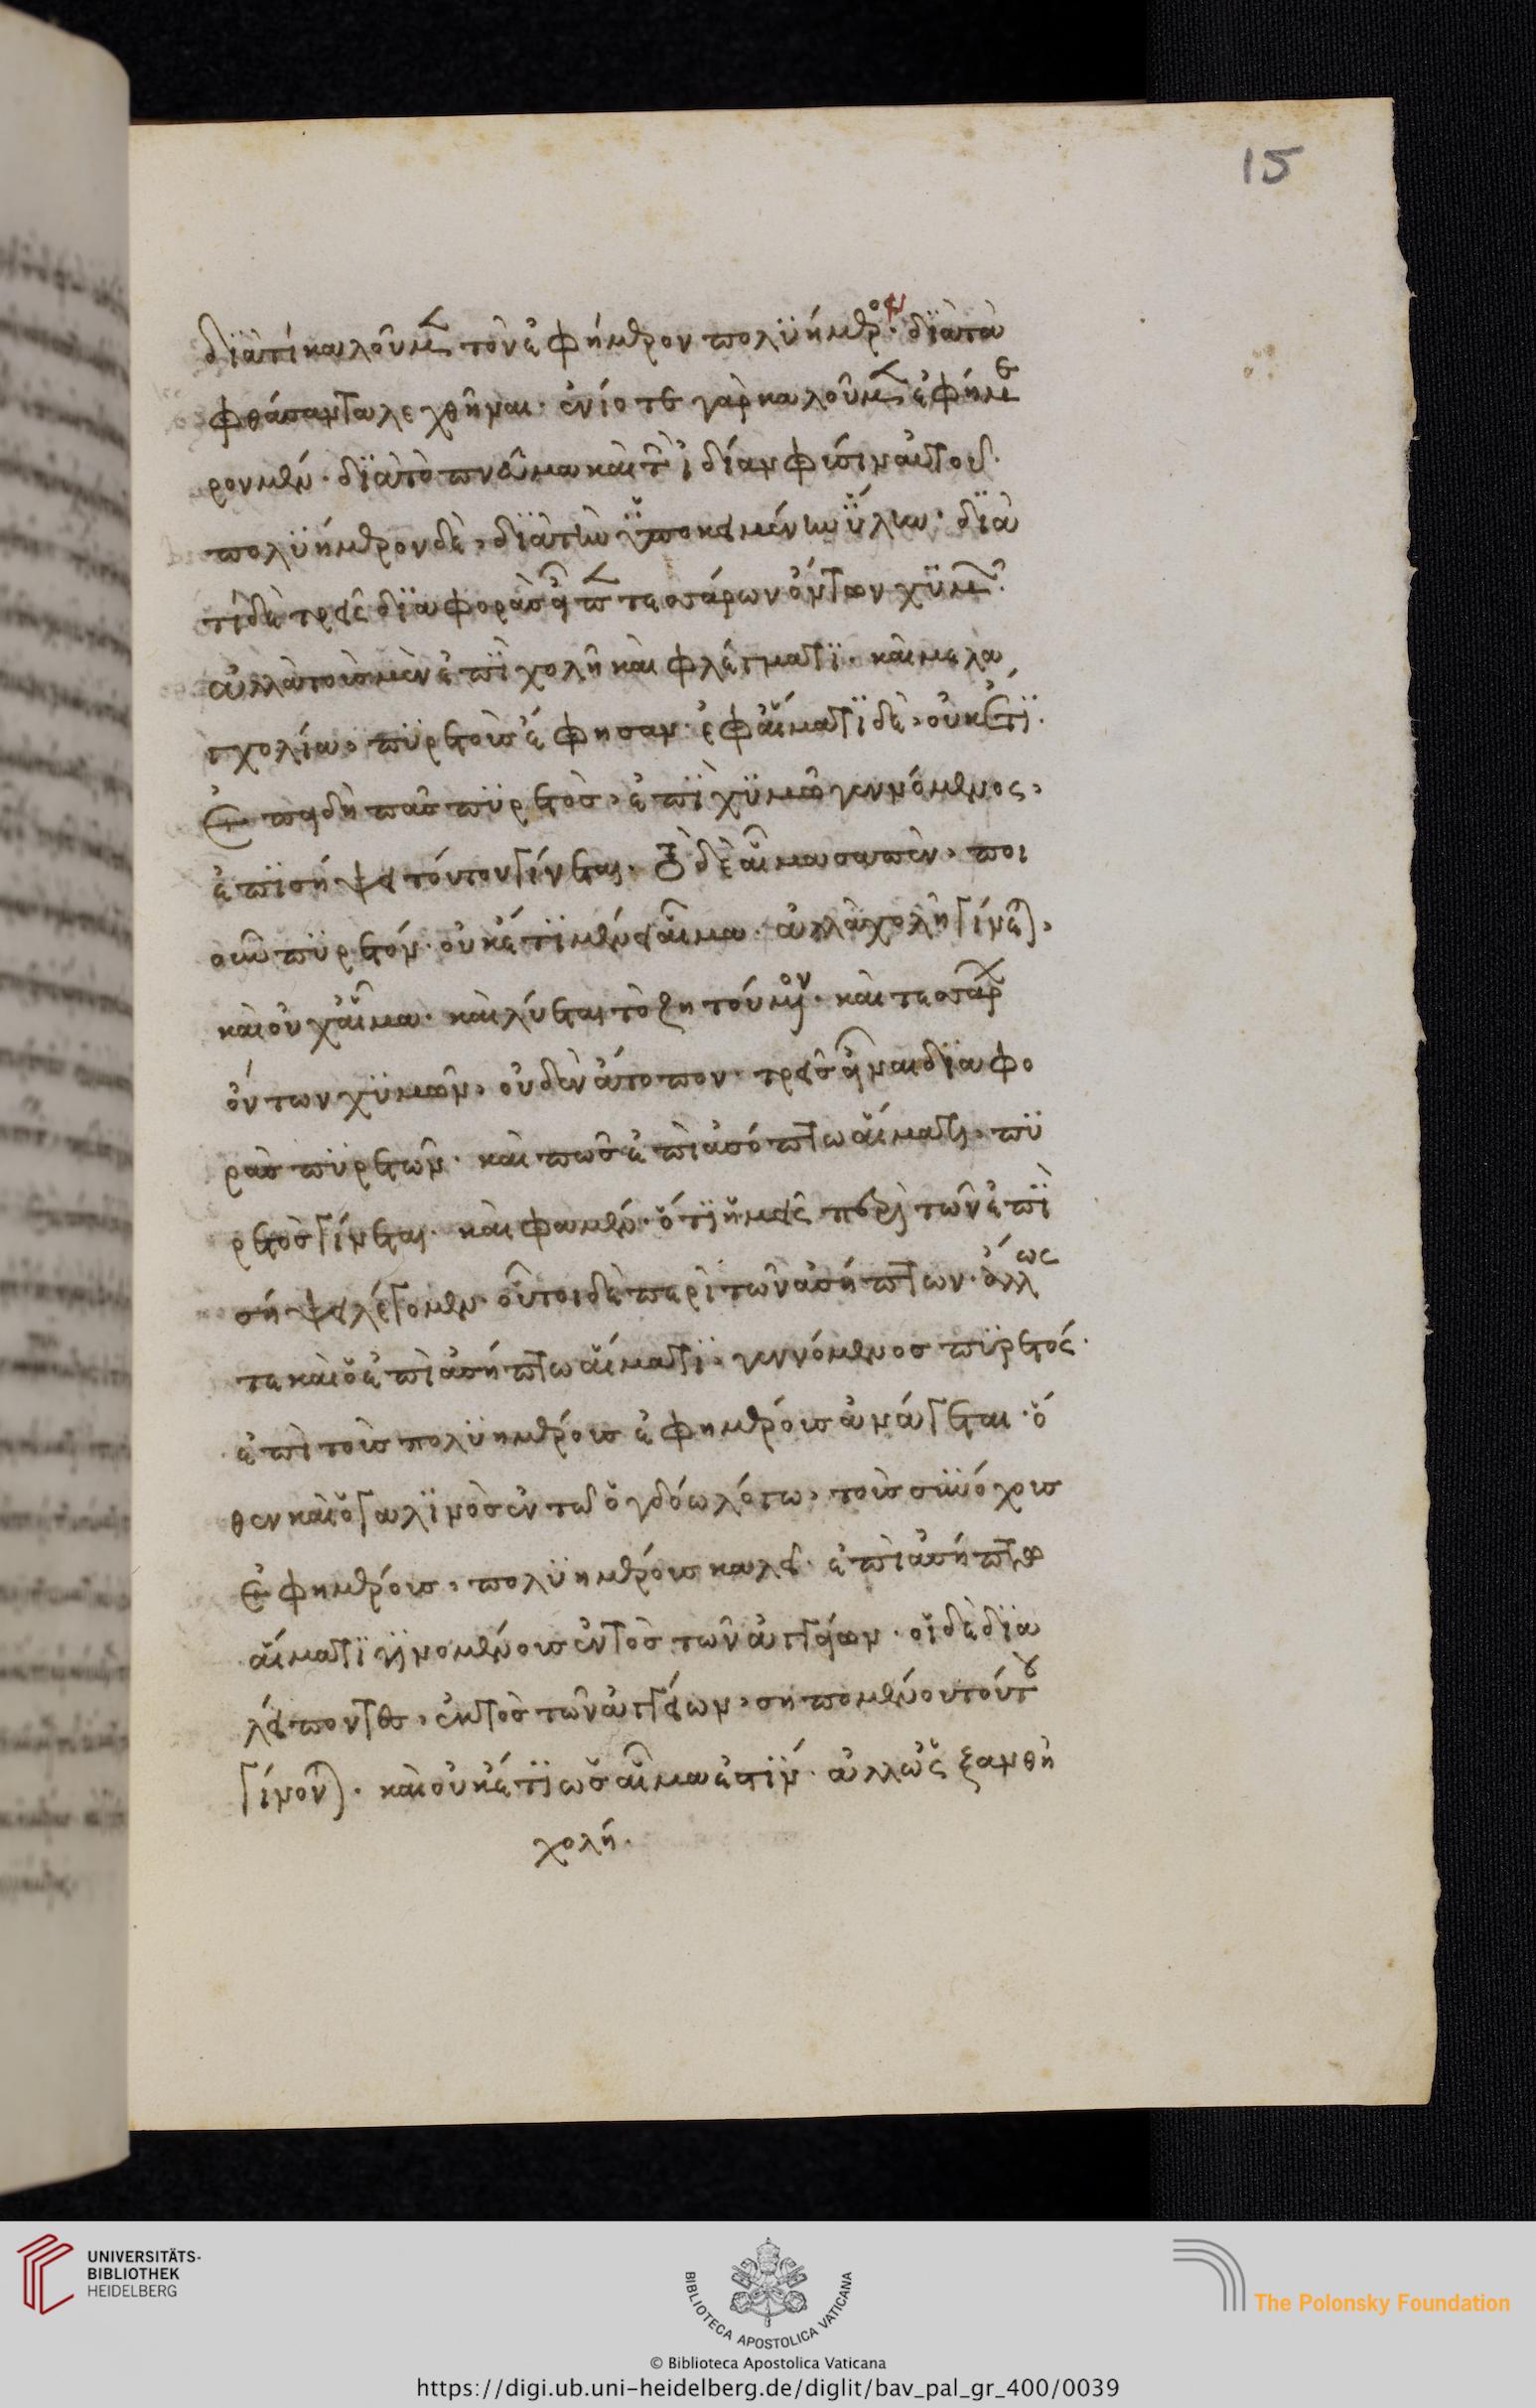 15
διὰ τί καλοῦμεν τὸν ἐφήμερον πολυήμερον· διὰ τὰ
φθάσαντα λεχθῆναι· ἐνίοτε γὰρ καλοῦμεν ἐφήμε
ρον μὲν· διὰ τὸ πνεῦμα καὶ τὴν ἰδίαν φύσιν αὐτοῦ·
πολυήμερον δὲ, διὰ τὴν ὑποκειμένην ὕλην· διὰ
τί δὲ τρεῖς διαφορὰς εἶπεν τεσσάρων ὄντων χυμῶν·
ἀλλὰ ποιὸ μὲν ἐπὶ χολῆ καὶ φλέγματι· καὶ μελα
γχολία, πυρετοὺς ἔφησαν· ἐφ' αἵματι δὲ, οὐκέτι·
ἐπειδὴ πᾶς πυρετὸς, ἐπὶ χυμῶ γεννόμενος,
ἐπὶ σήψει τούτου γίνεται· τὸ δὲ αἷμα σαπὲν, ποι
οῦν πυρετόν· οὐκέτι μένει αἷμα· ἀλλὰ χολὴ γίνεται,
καὶ οὐχ αἷμα· καὶ λύεται τὸ ζητούμενον· καὶ τεσσάρων
ὄντων χυμῶν, οὐδὲν ἄτοπον· τρεῖς εἶναι διαφο
ρὰς πυρετῶν· καὶ πῶς ἐπὶ ἀσήπτω αἵματι, πυ
ρετὸς γίνεται· καὶ φαμὲν· ὅτι ἡμεῖς περὶ τῶν ἐπὶ
σήψει λέγομεν· οὗτοι δὲ περὶ τῶν ἀσήπτων· ἄλλως
τε καὶ ὁ ἐπὶ ἀσήπτω αἵματι, γεννόμενος πυρετός·
ἐπὶ τοῖς πολυημέροις ἐφημέροις ἀνάγεται· ὅ
θεν καὶ ὁ γαληνὸς ἐν τῶ ὀγδόω λόγω, τοῖς συνόχοις
ἐφημέροις, πολυημέροις καλεῖ· ἐπὶ ἀσήπτω
αἵματι γινομένοις ἐντὸς τῶν ἀγγείων· οἱ δὲ δια
λείποντες, ἐκτὸς τῶν ἀγγείων, σηπομένου τούτου
γίνονται· καὶ οὐκέτι ὡς αἷμα ἐστίν· ἀλλ' ὡς ξανθὴ
χολή·
UNIVERSITÄTS-
BIBLIOTHEK
HEIDELBERG
BIBLIOTECA APOSTOLICA VATICANA
The Polonsky Foundation
© Biblioteca Apostolica Vaticana
https://digi.ub.uni-heidelberg.de/diglit/bav_pal_gr_400/0039